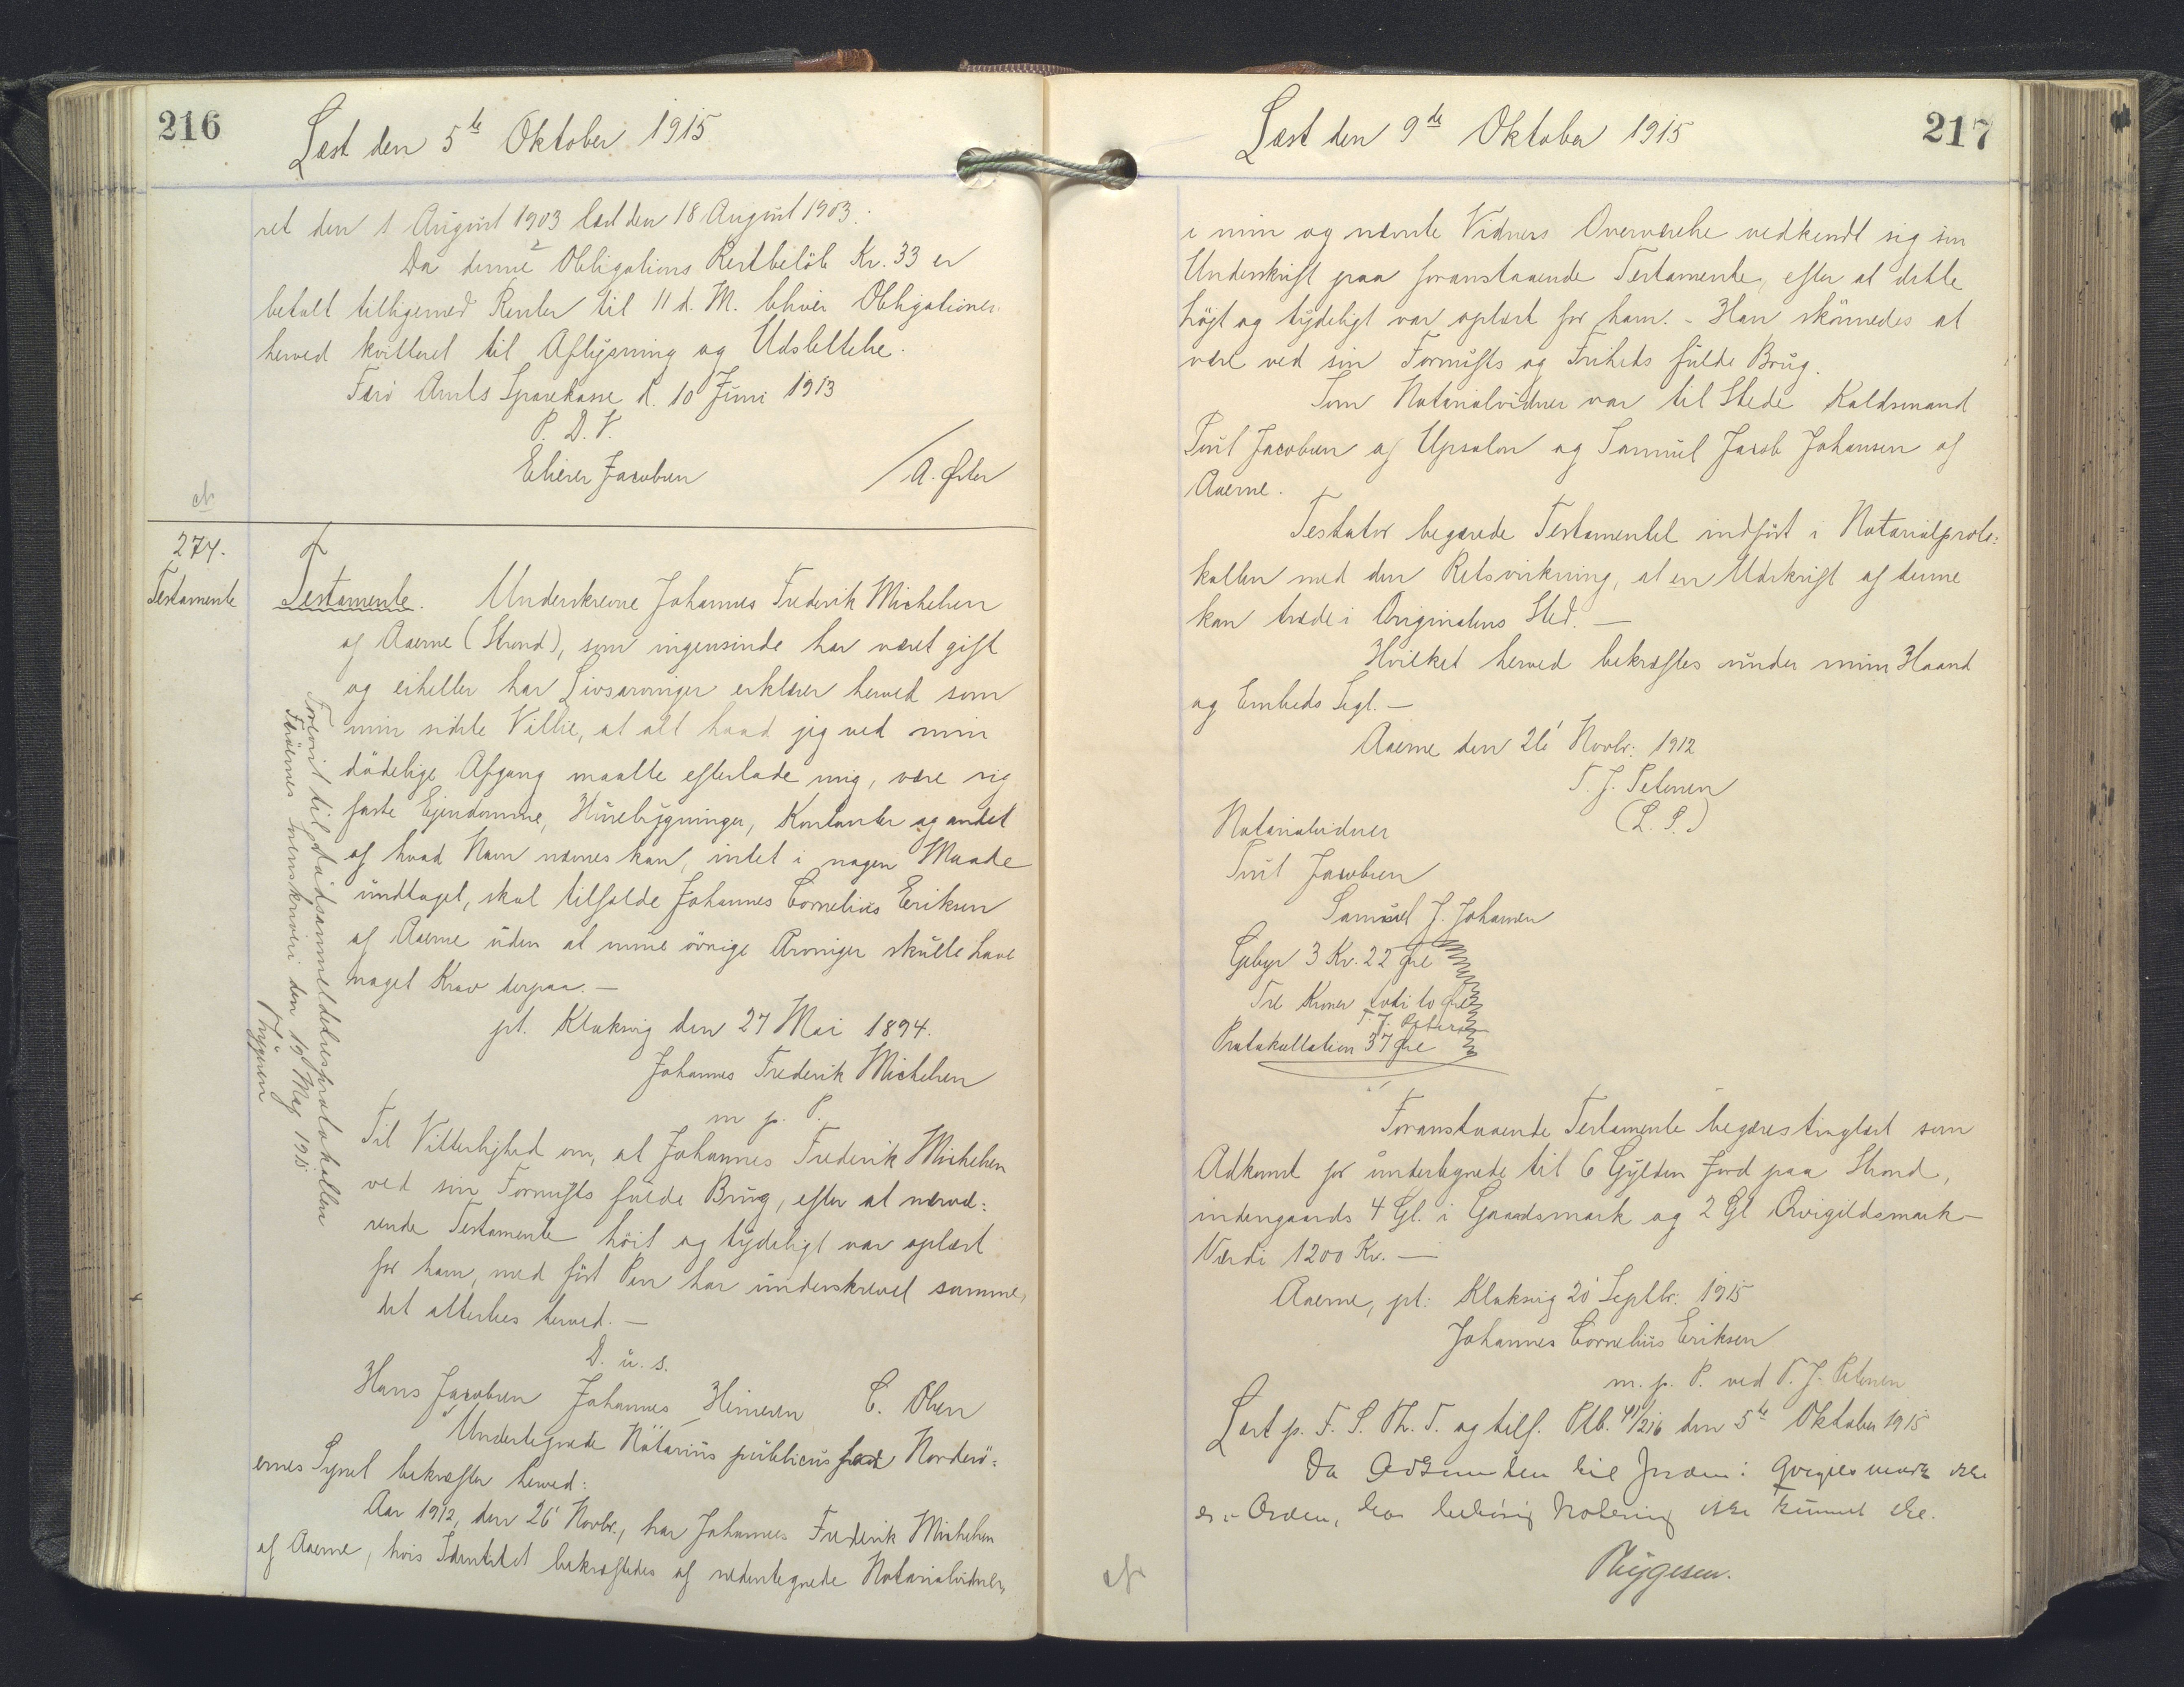 216
Læst den 5te Oktober 1915
ret den 1 August 1903 læst den 18 August 1903.
Da denne Obligations Restbeløb Kr. 33 er
betalt tilligemed Renter til 11 d. M. bliver Obligationen
herved kvitteret til Aflysning og Udslettelse.
Færø Amts Sparekasse d. 10 Juni 1913
P. D. V.
Elieser Jacobsen / A. Øster
274.
Testamente
Testamente. Underskrevne Johannes Frederik Michelsen
af Aaerne (Strond), som ingensinde har været gift
og eiheller har Livsarvinger erklærer herved som
min sidste Villie, at alt hvad jeg ved min
dödelige Afgang maatte efterlade mig, være sig
faste Ejendomme, Húsebygninger, Kontanter og andet
af hvad Navn nævnes kan, intet i nogen Maade
undtaget, skal tilfalde Johannes Cornelius Eriksen
af Aaerne uden at mine övrige Arvinger skulle have
noget Krav derpaa. —
pt. Klaksvig den 27 Mai 1894.
Johannes Frederik Michelsen
m. p. P.
Til Vitterlighed om, at Johannes Frederik Michelsen
ved sin Fornufts fulde Brug, efter at nærvæ:
rende Testamente höit og tydeligt var oplæst
for ham, med fört Pen har underskrevet samme,
det attesteres herved. —
D. u. s.
Hans Jacobsen Johannes Heinesen C. Olsen
Undertegnede Notarius publicus Norderö:
ernes Syssel bekræfter herved:
Aar 1912, den 26' Novbr., har Johannes Frederik Michelsen
af Aaerne, hvis Identitet bekræftedes af nedentegnede Notarialvidner,
Forevist til Dødsanmeldelsesprotokollen
Færøernes Sorenskriveri den 19 Maj 1915
Thygesen
217
Læst den 9de Oktober 1915
i min og nævnte Vidners Overværelse vedkendt sig sin
Underskrift paa foranstaaende Testamente, efter at dette
höjt og tydeligt var oplæst for ham. - Han skönnedes at
være ved sin Fornufts og Friheds fulde Brug.
Som Notarialvidner var til Stede Kaldsmand
Poul Jacobsen af Upsalen og Samuel Jacob Johansen af
Aaerne.
Testator begærede Testamentet indført i Notarialproto:
kollen med den Retsvirkning, at en Udskrift af denne
kan træde i Originalens Sted. —
Hvilket herved bekræftes under min Haand
og Embeds Segl. —
Aaerne den 26' Novbr: 1912
P. J. Petersen
(L. S.)
Notarialvidner
Poul Jacobsen
Samuel J. Johansen
Gebyr 3 Kr. 22 Øre
Tre Kroner toti to Øre
P. J. Petersen
Protokollation 37 Øre
Foranstaaende Testamente begæres tinglæst som
Adkomst for undertegnede til 6 Gylden Jord paa Strond,
indengaards 4 Gl. i Gaardsmark og 2 Gl Qvigildsmark —
Værdi 1200 Kr. —
Aaerne, pt: Klaksvig 20' Septbr: 1915
Johannes Cornelius Eriksen
m. p. P. ved P. J. Petersen
Læst p. F. S. Th. T. og tilf. Ptb. 41/216 den 5te Oktober 1915
Da Adkomsten til Jorden i Qvigilsmark ikke
er i Orden, har behørig Notering ikke kunnet ske.
Thygesen.